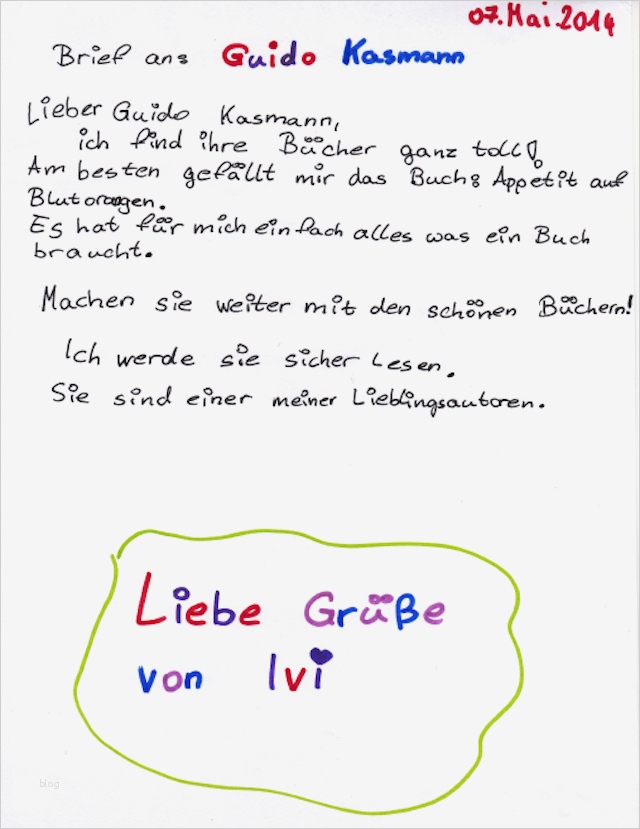 07.Mai.2014
Brief ans Guido Kasmann
Lieber Guido Kasmann,
ich find ihre Bücher ganz toll!
Am besten gefällt mir das Buch: Appetit auf
Blutorangen.
Es hat für mich einfach alles was ein Buch
braucht.
Machen sie weiter mit den schönen Büchern!
Ich werde sie sicher Lesen.
Sie sind einer meiner Lieblingsautoren.
Liebe Grüße
von Ivi
blog